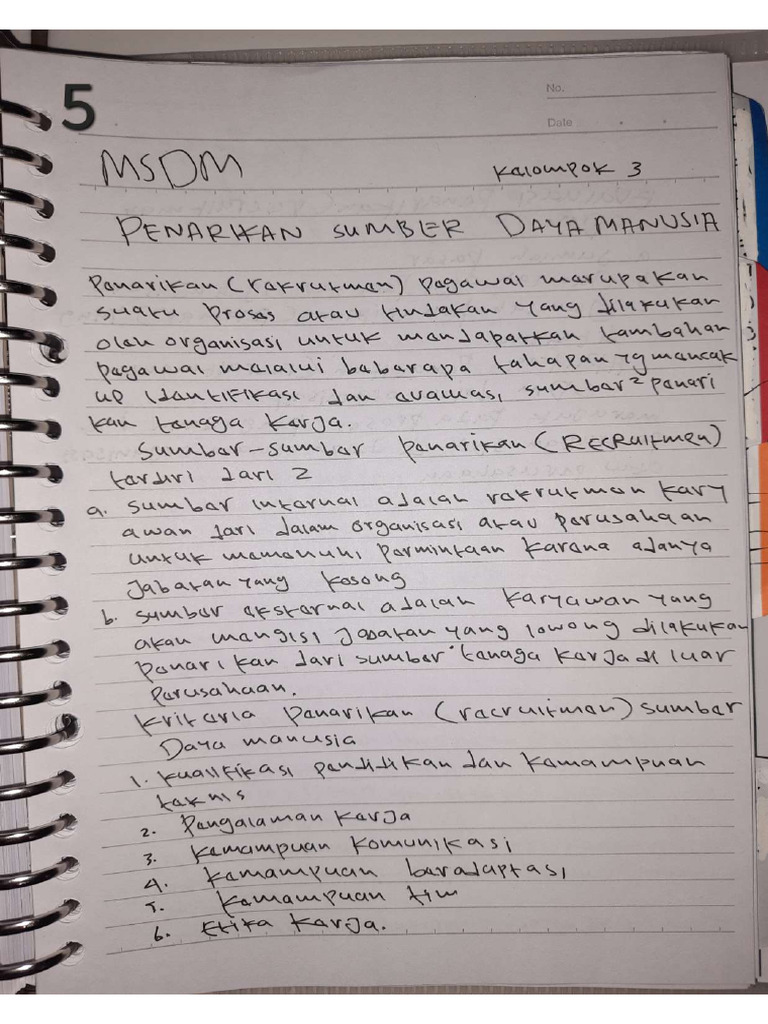 5
No.
Date
MSDM
Kelompok 3
PENARIKAN SUMBER DAYA MANUSIA
Penarikan (rekrutmen) pegawai merupakan
suatu proses atau tindakan yang dilakukan
oleh organisasi untuk mendapatkan tambahan
pegawai melalui beberapa tahapan yg mencak
up identifikasi dan evaluasi sumber² penari
kan tenaga kerja.
Sumber-sumber penarikan (RECRUITMEN)
terdiri dari 2
a. sumber internal adalah rekrutmen kary
awan dari dalam organisasi atau perusahaan
untuk memenuhi permintaan karena adanya
jabatan yang kosong
b. sumber eksternal adalah karyawan yang
akan mengisi jabatan yang lowong dilakukan
penarikan dari sumber tenaga kerja di luar
perusahaan.
Kriteria penarikan (recruitmen) sumber
Daya manusia
1. kualifikasi pendidikan dan kemampuan
teknis
2. Pengalaman kerja
3. kemampuan komunikasi
4. kemampuan beradaptasi
5. kemampuan tim
6. Etika kerja.